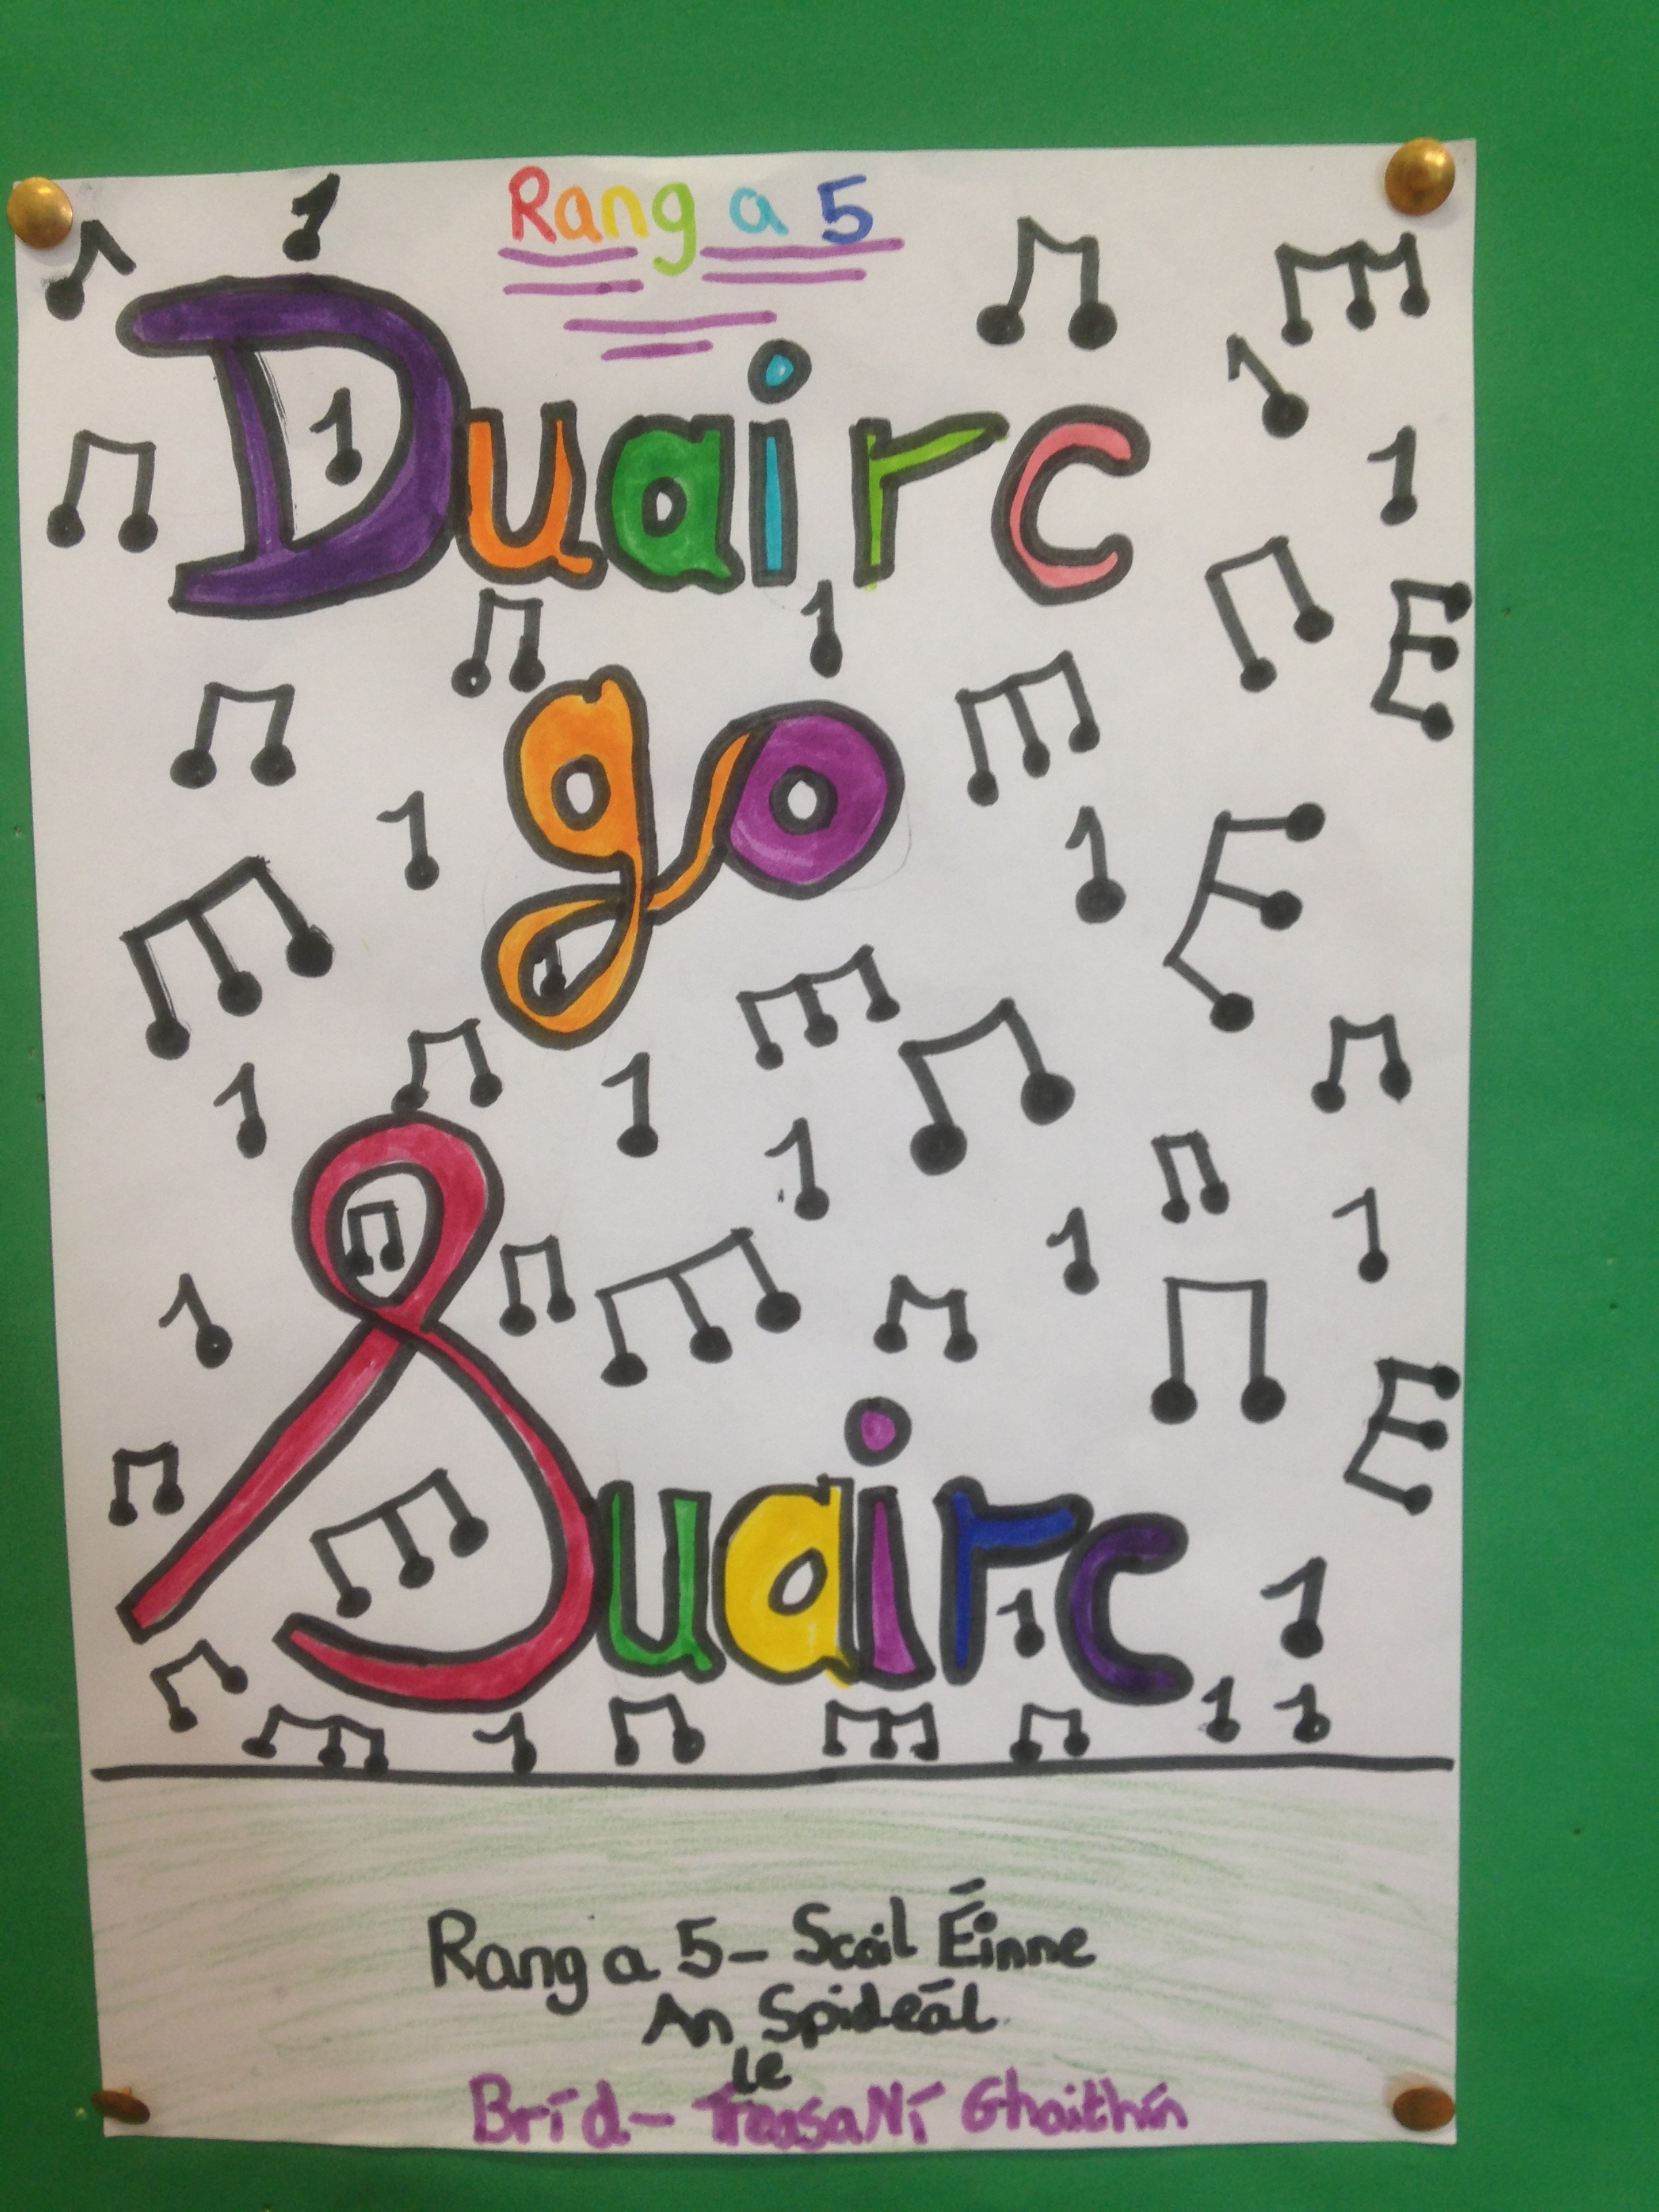 Rang a 5
Duairc
go
Suairc
Rang a 5 - Scoil Éinne
An Spidéal
le
Bríd - Treasa Ní Ghaithín